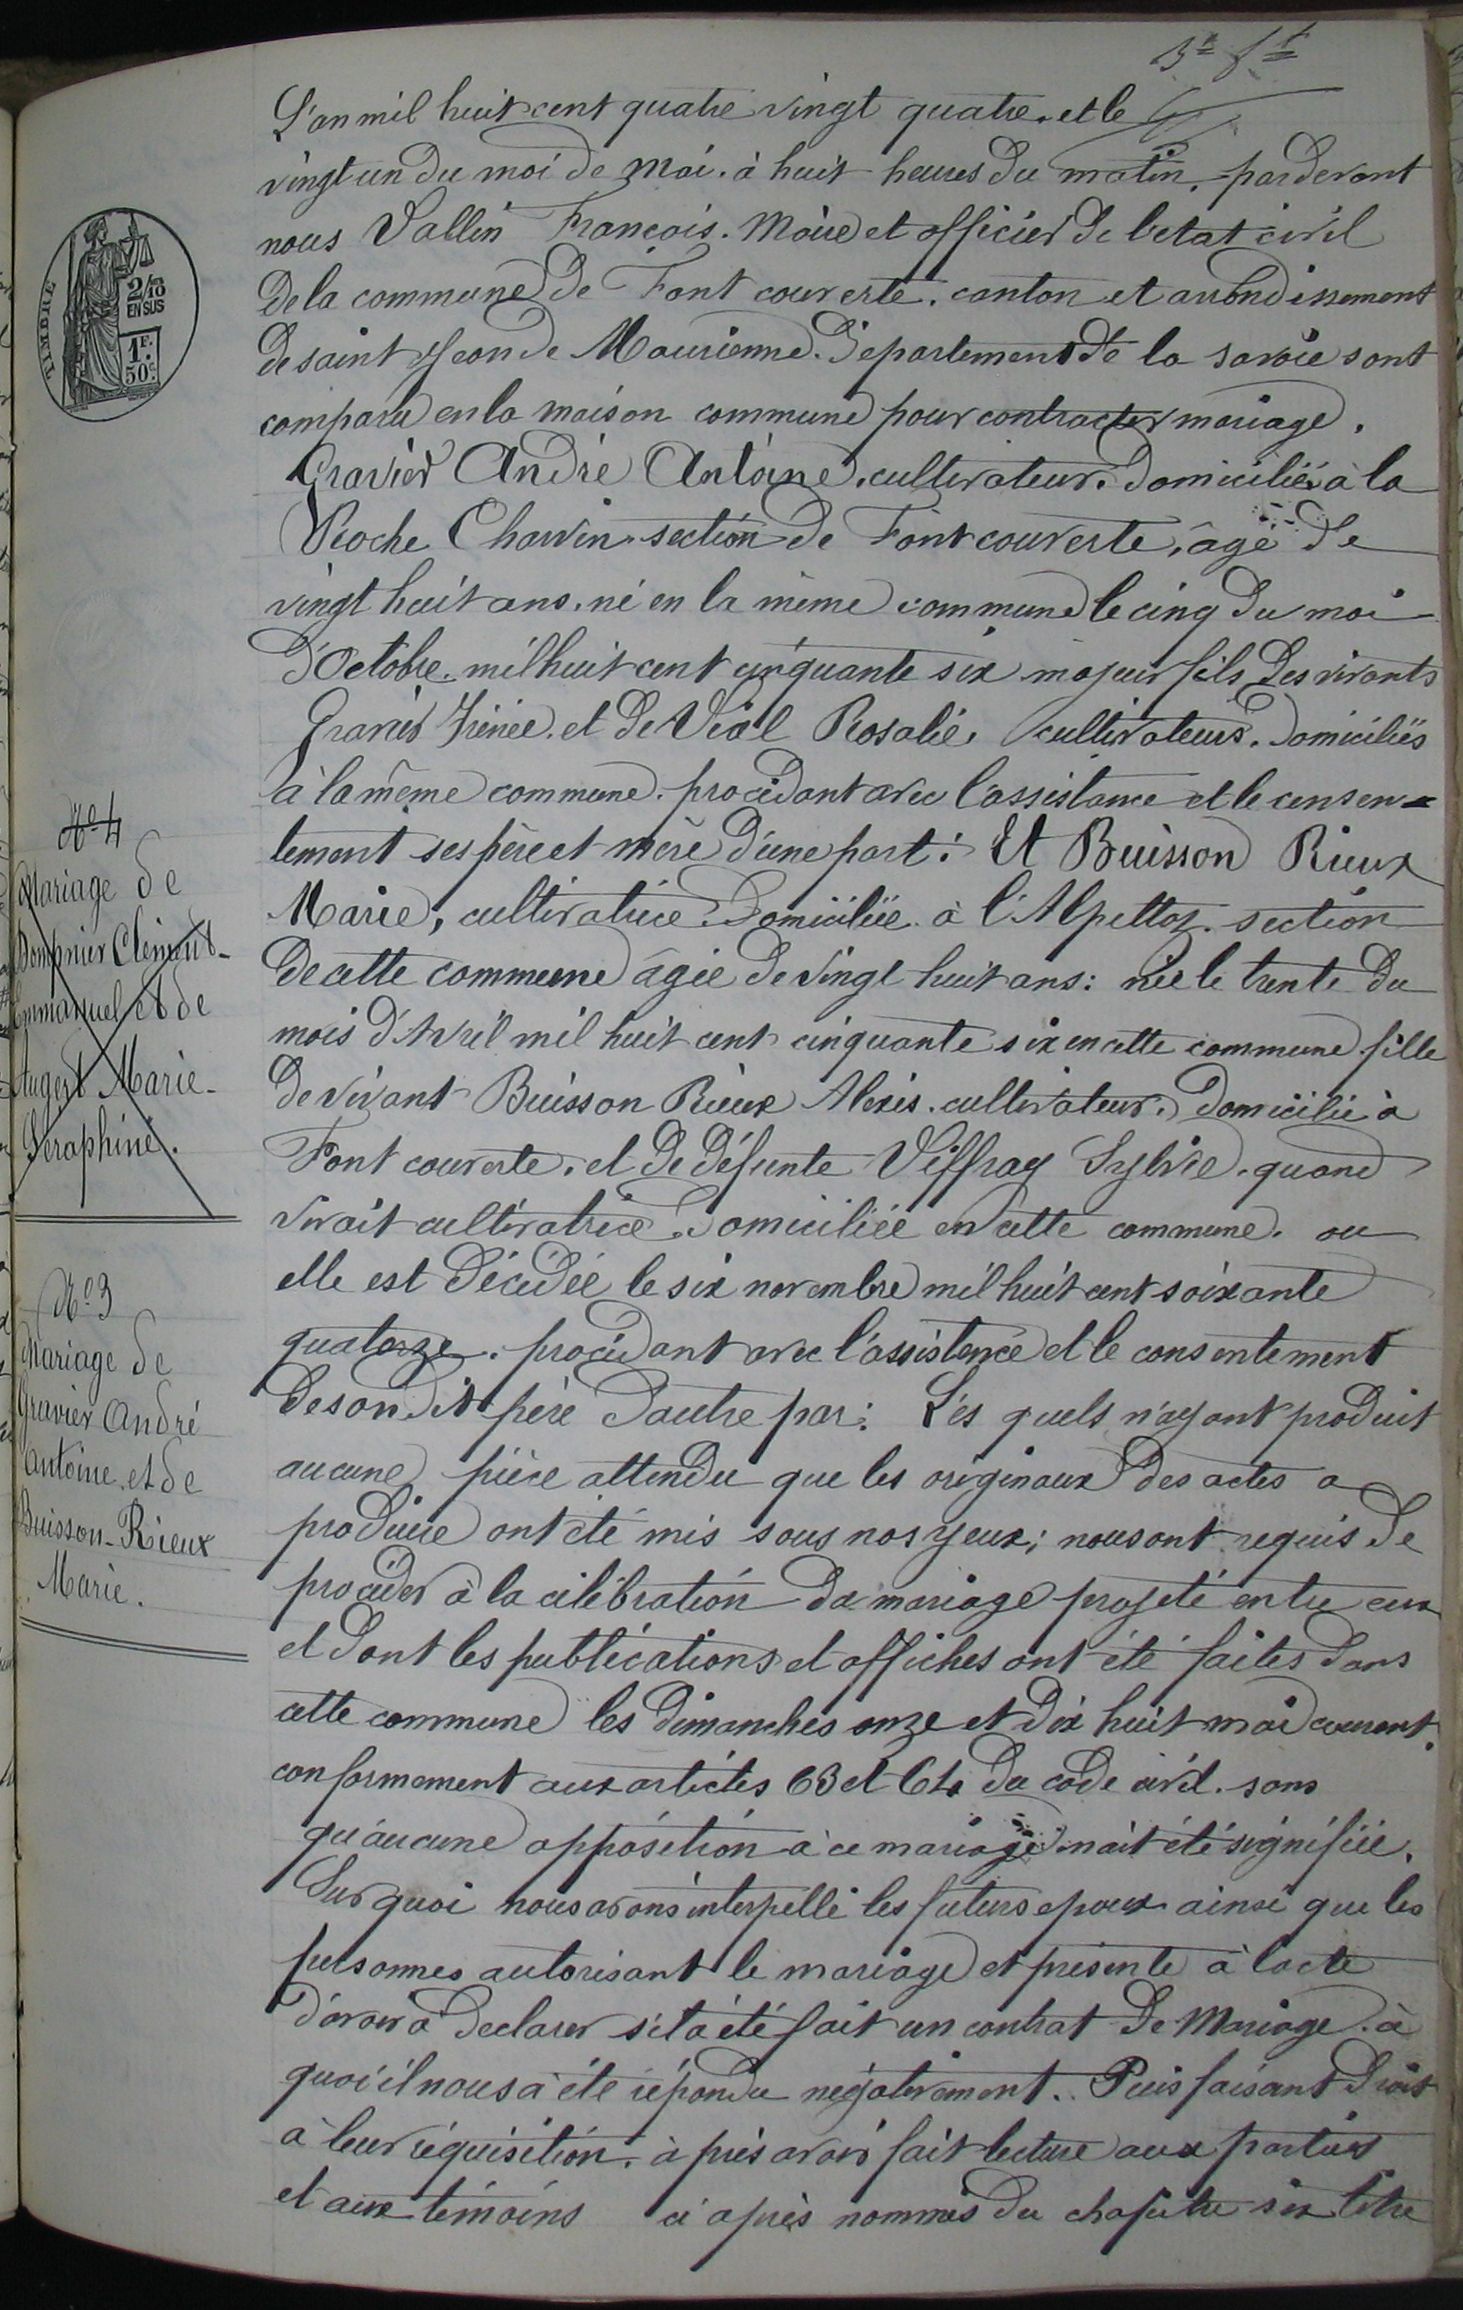 3e ft
L'an mil huit cent quatre vingt quatre et le
vingt un du moi de Mai à huit heures du matin, pardevant
nous Vallin François. Maire et officier de l'etat civil
de la commune de Fontcouverte. canton et arrondissement
de saint Jean de Maurienne. Departement de la savoie sont
comparu en la maison commune pour contracter mariage.
Gravier André Antoine, cultivateur. domicilié à la
Roche Charvin section de Fontcouverte, âgé de
vingt huit ans. né en la même commune le cinq du moi
d'Octobre mil huit cent cinquante six majeur fils des vivants
Gravier Irénée. et de Vial Rosalie, cultivateurs. domiciliés
à la même commune. procédant avec l'assistance et le consen=
tement ses père et mère d'une part: Et Buisson Rieux
Marie, cultivatrice. Domiciliée à l'Alpettaz. section
de cette commune âgée de vingt huit ans: née le trente du
mois d'Avril mil huit cent cinquante six en cette commune fille
de vivant Buisson Rieux Alexis. cultivateur. domicilié à
Fontcouverte. et de défunte Viffray Sylvie. quand
vivait cultivatrice. Domiciliée en cette commune. ou
elle est décédée le six novembre mil huit cent soixante
quatorze. procédant avec l'assistance et le consentement
de son dit père d'autre par: Les quels n'ayant produit
aucune pièce attendu que les originaux des actes a
produire ont été mis sous nos yeux; nous ont requis de
procéder à la célébration du mariage projeté entre eux
et dont les publications et affiches ont été faites dans
cette commune les dimanches onze et dix huit mai courant.
conformement aux articles 63 et 64 du code civil. sans
qu'aucune opposition à ce mariage n'ait été signifiée.
Sur quoi nous avons interpellé les futurs epoux ainsi que les
personnes autorisant le mariage et présente à l'acte
d'avoir a déclarer s'il a été fait un contrat de Mariage. à
quoi il nous a été répondu négativement. Puis faisant droit
a leur réquisition. à près avoir fait lecture aux parties
et aux témoins ci après nommés du chapitre six titre
TIMBRE
2/10
EN SUS
1F.
50c
No 4
Mariage de
Dompnier Clément-
Emmanuel et de
Augert Marie-
Séraphine.
No 3
Mariage de
Gravier André
Antoine et de
Buisson-Rieux
Marie.